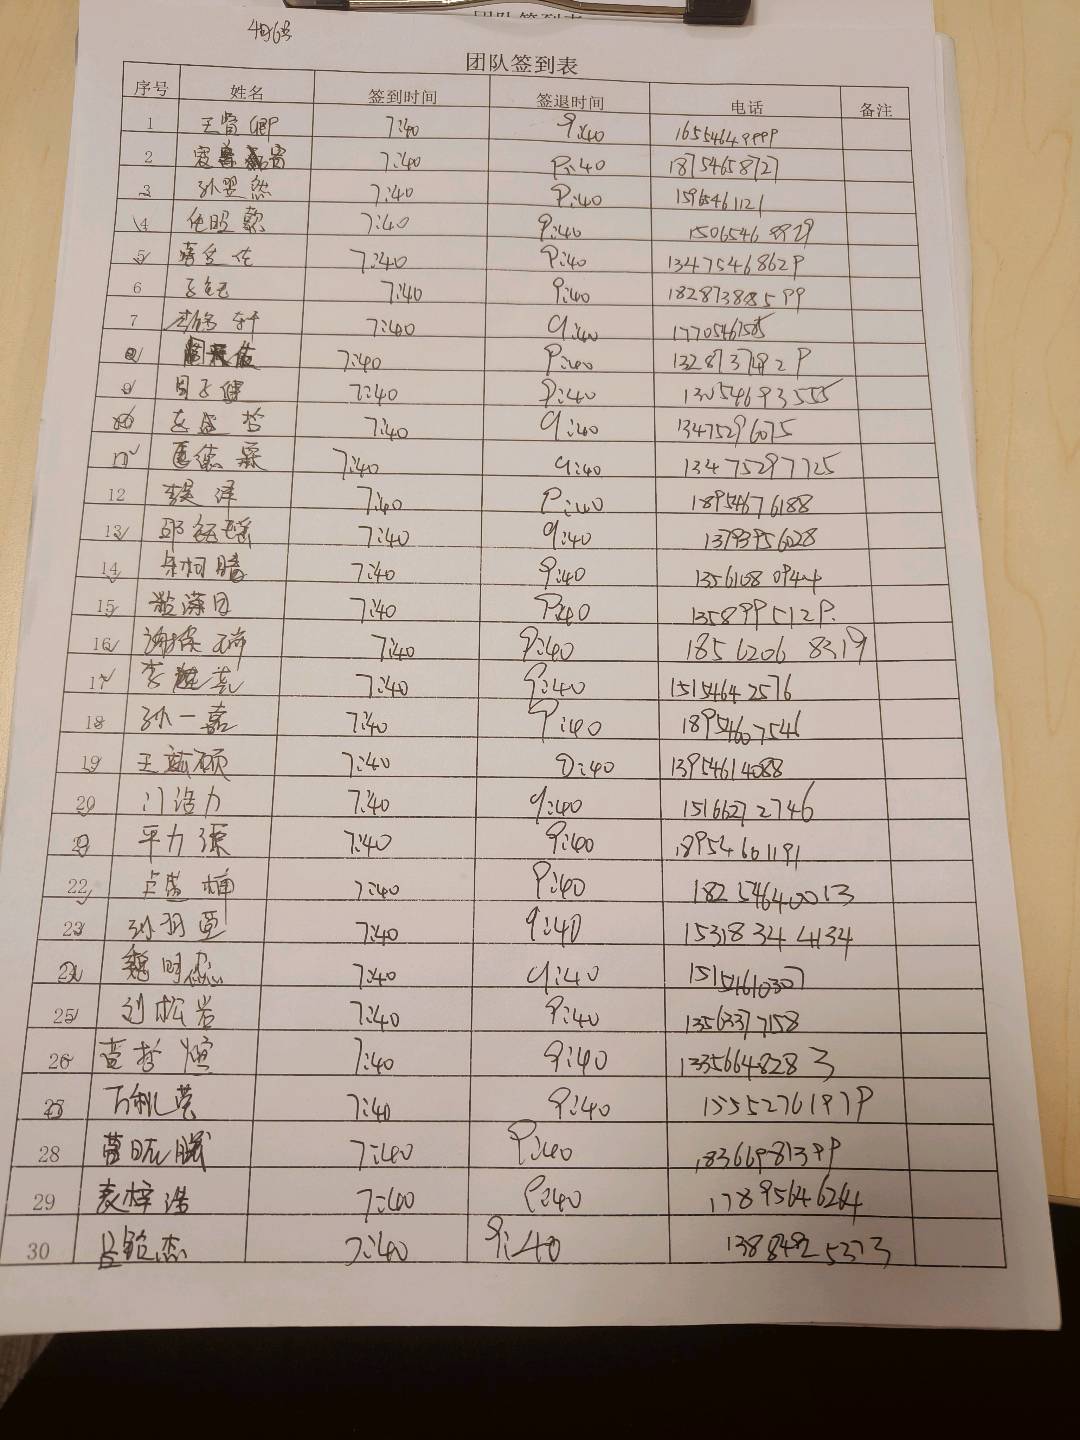 4月6号
团队签到表
序号 姓名 签到时间 签退时间 电话 备注
1 王贤卿 7:40 9:40 16554649999
2 7:40 9:40 18754658727
3 孙翌然 7:40 9:40 1596461121
4 任昭歌 7:40 9:40 15065468929
5 7:40 9:40 13475468629
6 7:40 9:40 18287388599
7 7:40 9:40
8 7:40 9:40 13287374929
9 7:40 9:40 13054693555
10 7:40 9:40 13475296075
11 7:40 9:40 13475297725
12 李昊泽 7:40 9:40 18954676188
13 7:40 9:40 13793956028
14 7:40 9:40 13561080944
15 7:40 9:40 1358995129
16 7:40 9:40 18562068319
17 7:40 9:40 15154642576
18 孙一嘉 7:40 9:40 18954607546
19 7:40 9:40 13954614088
20 门浩力 7:40 9:40 15166272746
21 平力源 7:40 9:40 18954601191
22 卢盛楠 7:40 9:40 18254640013
23 孙羽亚 7:40 9:40 15318344134
24 魏明 7:40 9:40 15154610307
25 刘松岩 7:40 9:40 13563377158
26 7:40 9:40 13356648283
27 7:40 9:40 15552761979
28 7:40 9:40 18366981399
29 袁梓浩 7:40 9:40 17895646264
30 吕铭杰 7:40 9:40 13884925373